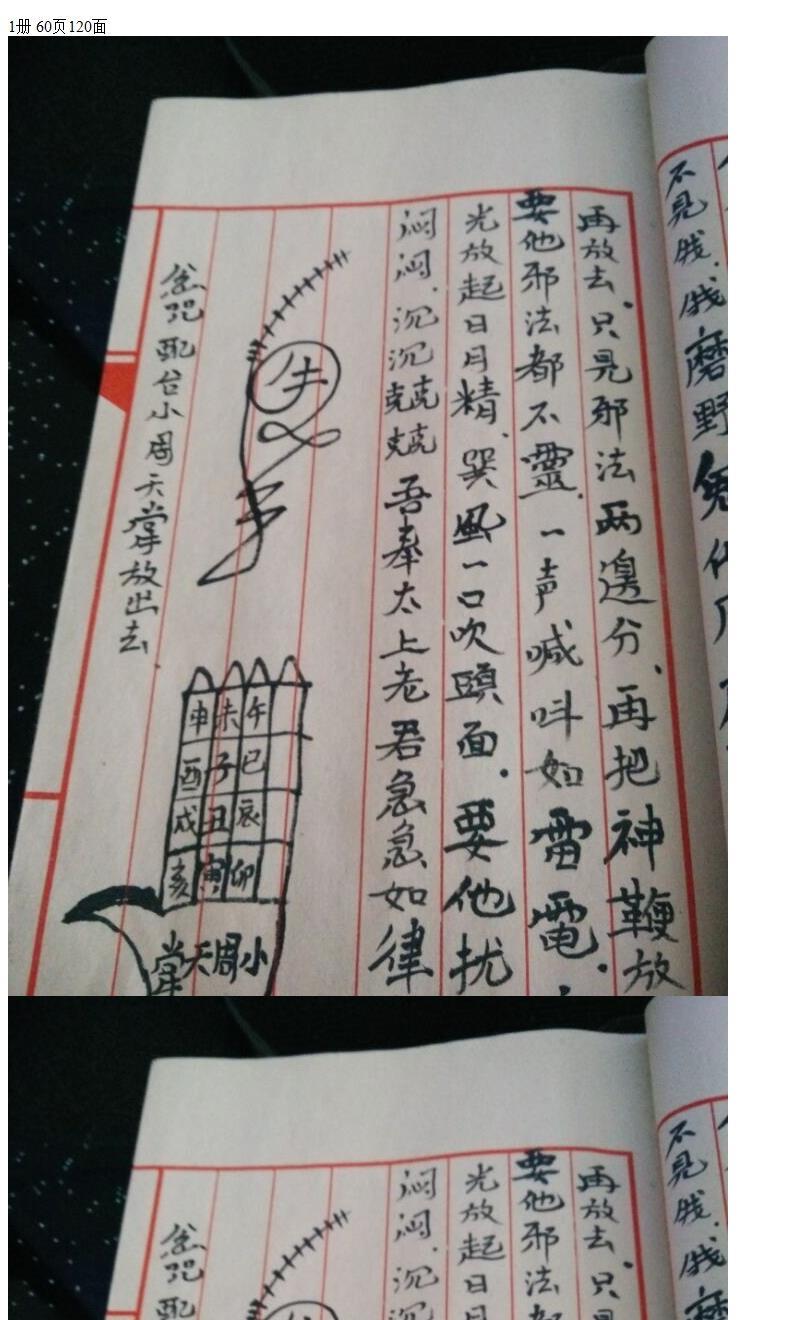 1册 60页120面
不見我.我磨野
再放去.只見邪法两邊分、再把神鞭放
要他邪法都不靈.一声喊叫如雷電.
光放起日月精、巽風一口吹頭面.要他扰
闷闷、沉沉兢兢吾奉太上老君急急如律
申未午
酉子巳
戌丑辰
亥寅卯
掌天周小
配合小周天掌放出去.
不見我.我磨
再放去.只見
要他邪法都
光放起日月
闷闷、沉沉
配